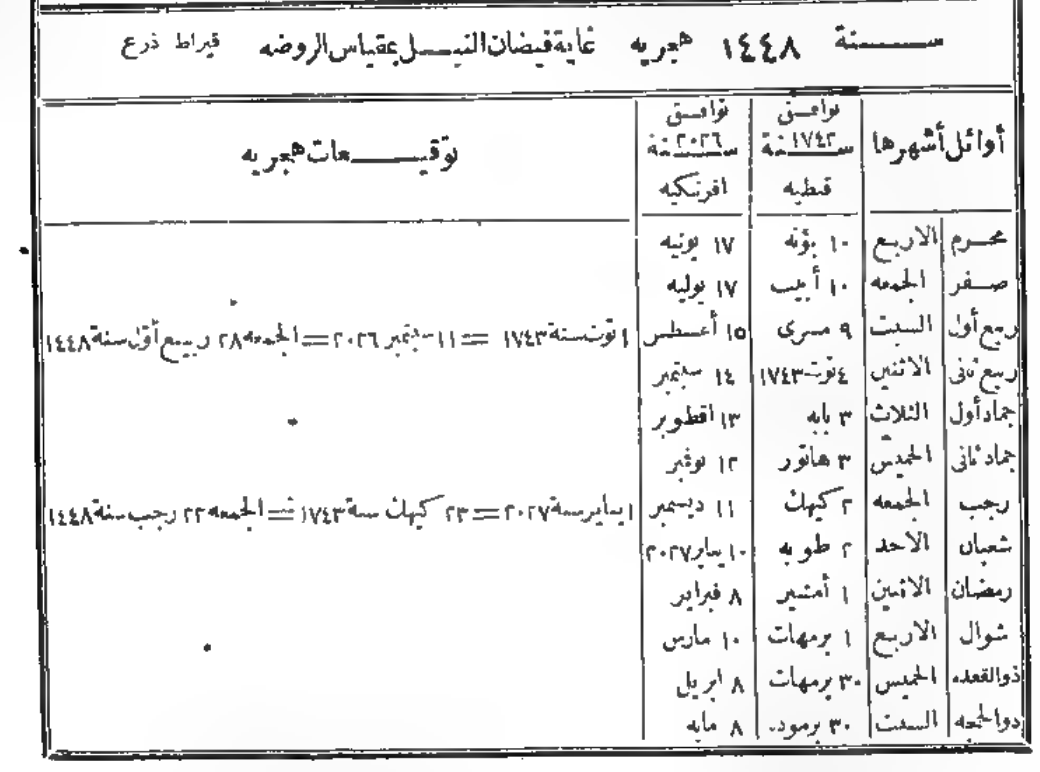 سنة ١٤٤٨ هجريه غاية فيضان النيل بمقياس الروضه قيراط ذرع
أوائل أشهرها توافق سنة ١٧٤٢ قبطيه توافق سنة ٢٠٢٦ افرنكيه توقيعات هجريه
محرم الاربع ١٠ بؤنه ١٧ يونيه
صفر الجمعه ١٠ أبيب ١٧ يوليه
ربيع أول السبت ٩ مسرى ١٥ أغسطس ١ توت سنة ١٧٤٣ = ١١ سبتمبر ٢٠٢٦ = الجمعه ٢٨ ربيع أول سنة ١٤٤٨
ربيع ثانى الاثنين ٤ توت ١٧٤٣ ١٤ سبتمبر
جماد أول الثلاث ٣ بابه ١٣ اقطوبر
جماد ثانى الخميس ٣ هاتور ١٢ نوفمبر
رجب الجمعه ٢ كيهك ١١ ديسمبر ١ يناير سنة ٢٠٢٧ = ٢٣ كيهك سنة ١٧٤٣ = الجمعه ٢٢ رجب سنة ١٤٤٨
شعبان الاحد ٢ طوبه ١٠ يناير ٢٠٢٧
رمضان الاثنين ١ أمشير ٨ فبراير
شوال الاربع ١ برمهات ١٠ مارس
ذوالقعده الخميس ٣٠ برمهات ٨ ابريل
ذوالحجه السبت ٣٠ برموده ٨ مايه